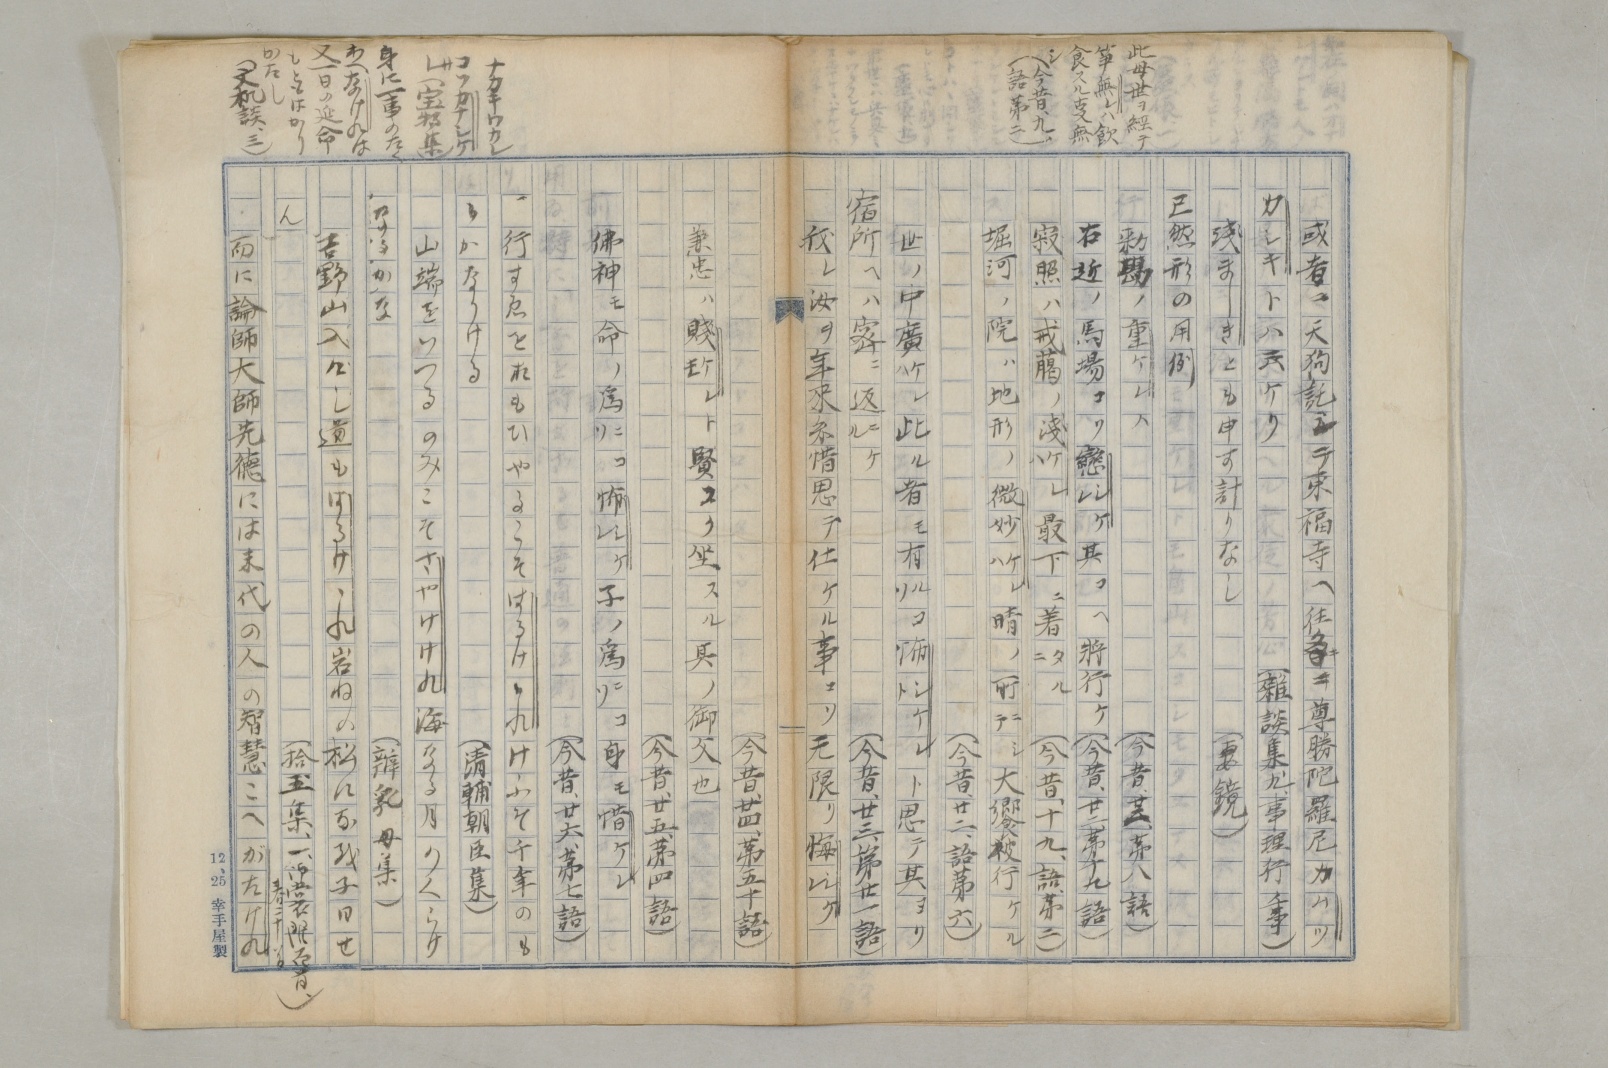 此母世ヲ経テ
箪無レハ飲
食スル支無
シ(今昔、九、
語第二)
或者ニ天狗託シテ東福寺ヘ往キ尊勝陀羅尼カハツ
カシキトハ云ケリ (雑談集九、事理行事)
残ましきとも申す計りなし (妻鏡)
已然形の用例
勅勘ノ重ケレハ (今昔、廿三、第八語)
右近ノ馬場コソ戀シケ其コヘ將行ケ (今昔、廿二、第十九語)
寂照ハ戒﨟ノ淺ケレハ最下ニ着タルニ (今昔、十九、語第二)
堀河ノ院ハ地形ノ微妙ケレハ晴ノ所ニテシ大饗被行ケル
(今昔、廿二、語第六)
世ノ中廣ケレハ此ル者モ有ルコソ怖シケレト思テ其ヨリ
宿所ヘハ寄ニ返ニケル (今昔、廿三、第廿一語)
我レ汝ヲ年来糸惜思テ仕ケル事コソ无限リ悔シケレ
(今昔、廿四、第五十語)
兼忠ハ賤ケレトモ賢コク坐スル其ノ御父也
(今昔、廿五、第四語)
佛神モ命ノ爲ニコソ怖シケレ子ノ爲ニコソ身モ惜ケレ
(今昔、廿六、第七語)
行すゑをおもひやるこそはるけゝれけふそ千年のも
とかなりける (清輔朝臣集)
山端をいつるのみこそさやけけれ海なる月のくらけ
なるかな (辨乳母集)
吉野山入りし道もはるけゝれ岩ねの松に子日せ
ん (拾玉集、一
而に論師大師先德には末代の人の智慧こへがたけれ
ナカキワカレ
コソカナシケ
レ(宝物集)
身に事のたへ
あへなけれは
又一日の延命
もとはかり
かたし
(文机談、三)
12、25 幸手屋製